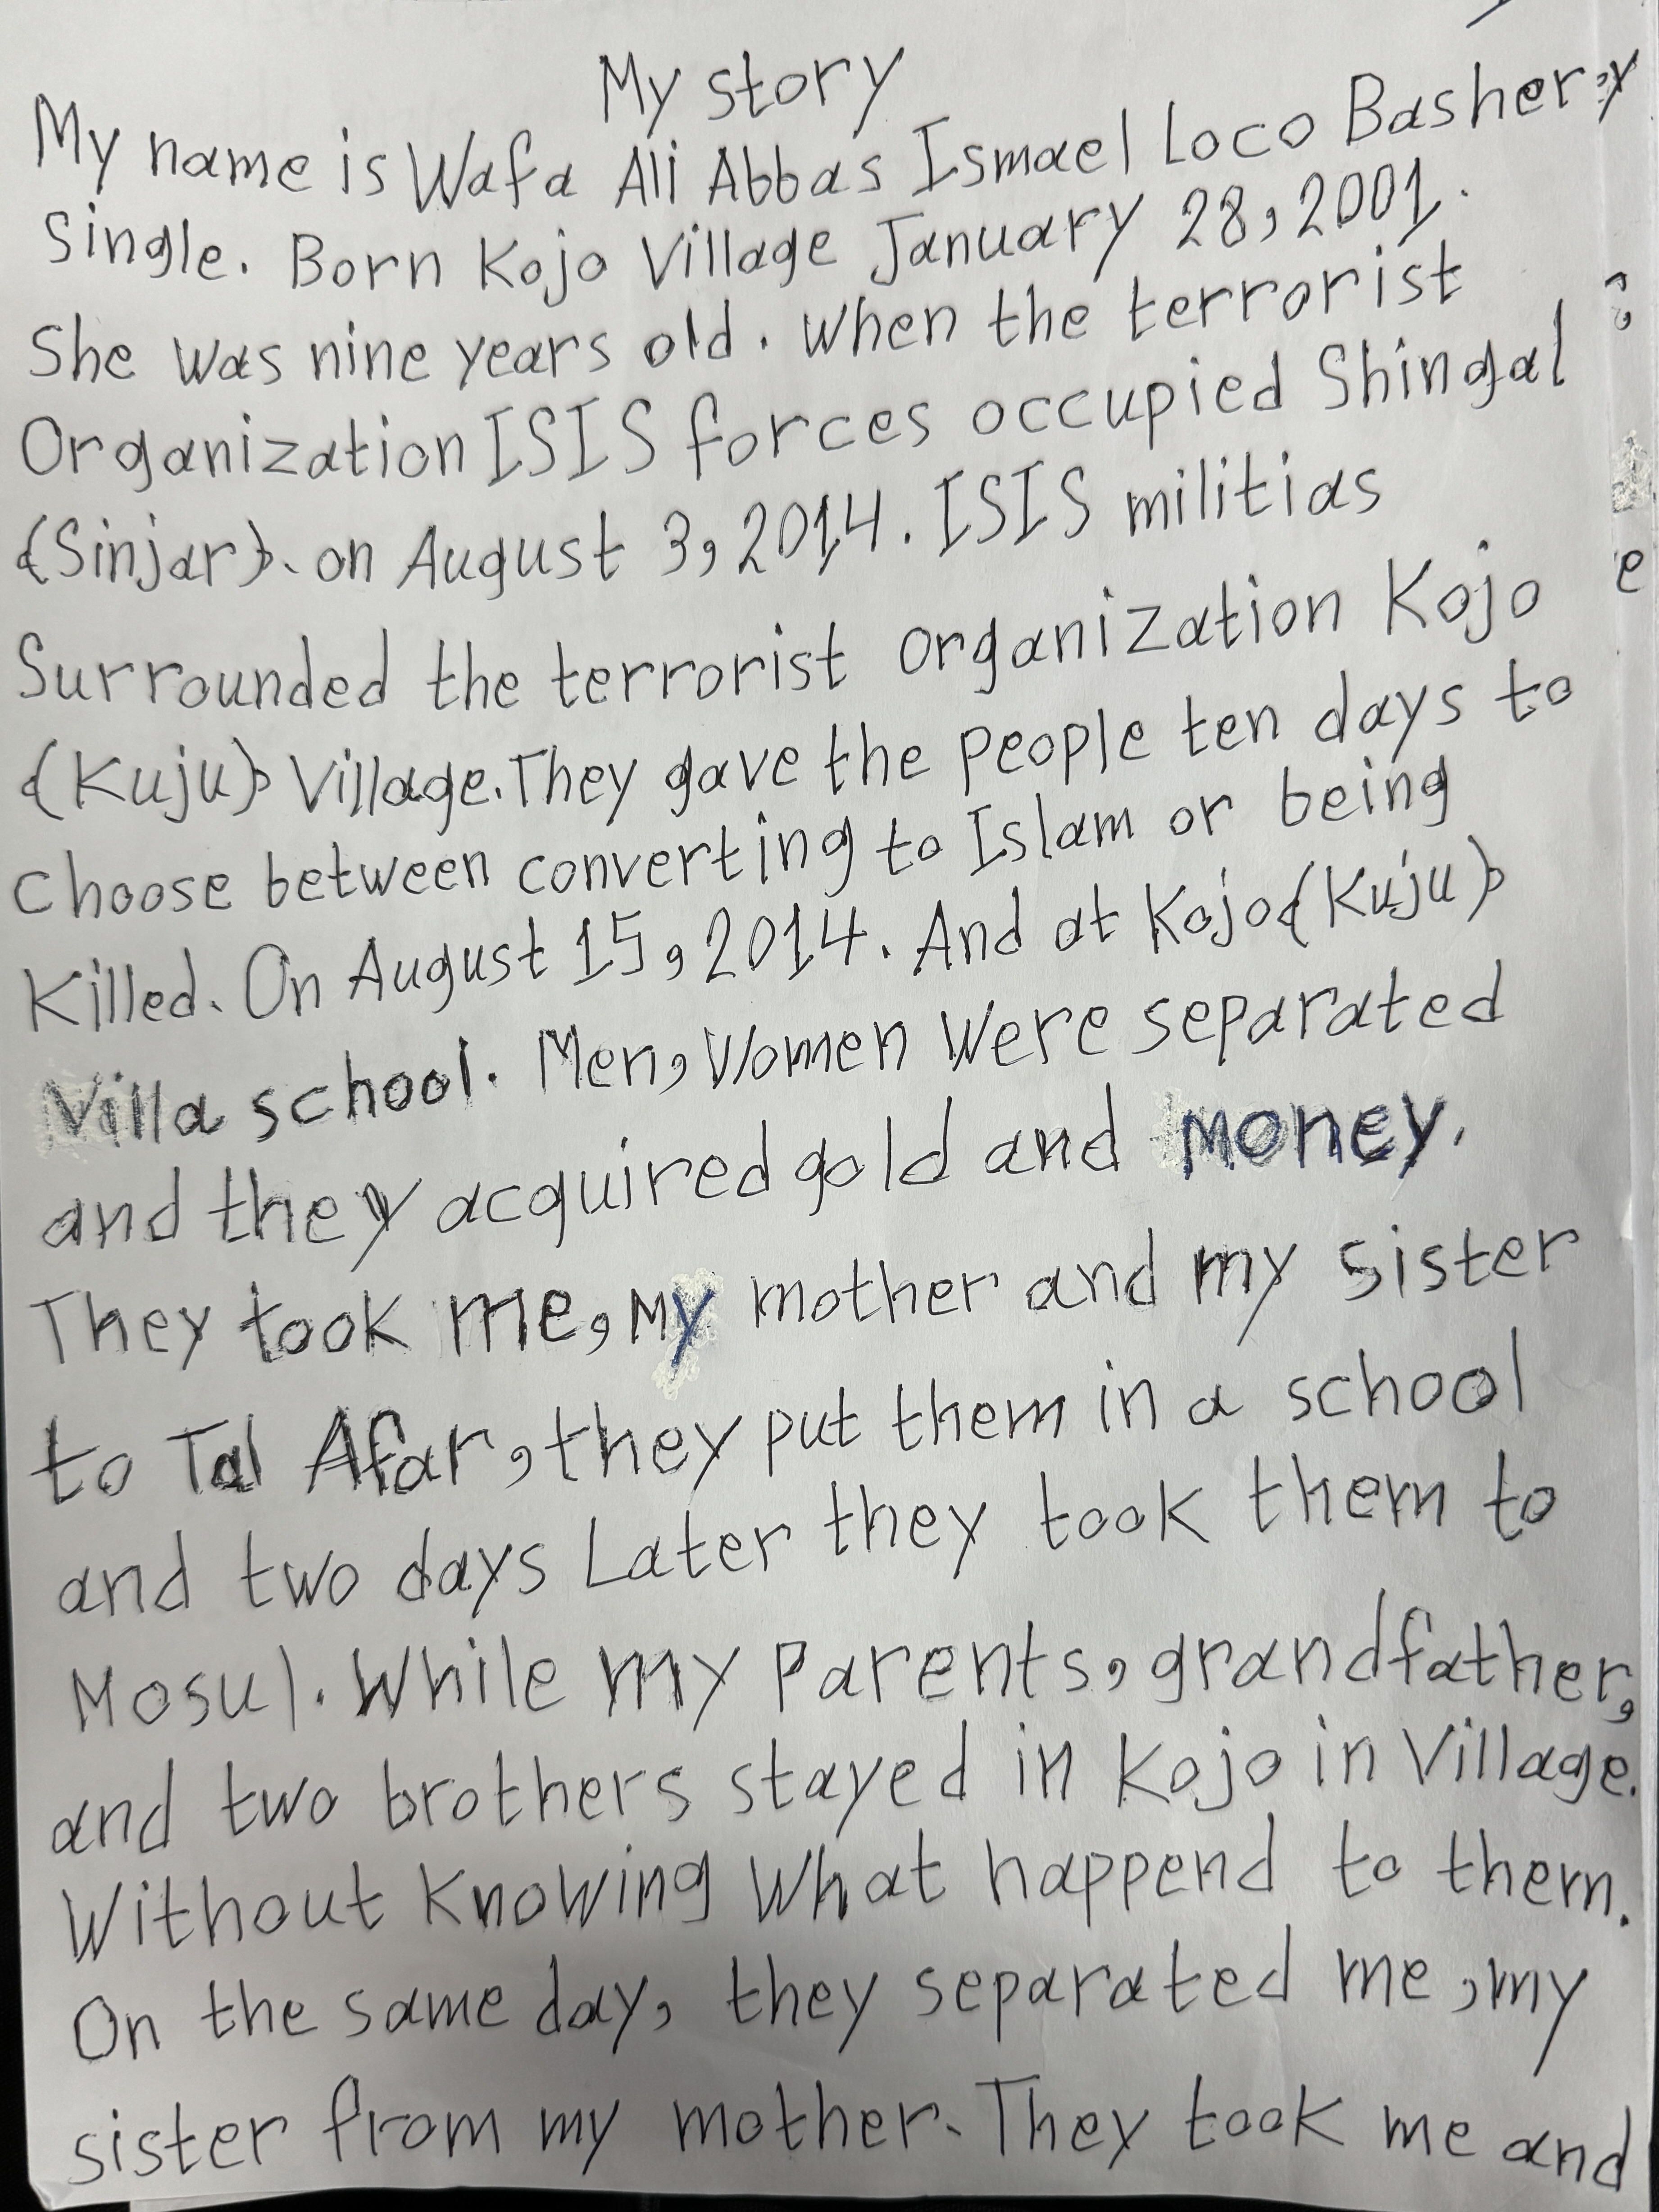 My story
My name is Wafa Ali Abbas Ismael Loco Bashery
Single. Born Kojo Village January 28, 2001.
She was nine years old. When the terrorist
Organization ISIS forces occupied Shingal
(Sinjar). on August 3, 2014. ISIS militias
Surrounded the terrorist organization Kojo
(Kuju) Village. They gave the people ten days to
choose between converting to Islam or being
Killed. On August 15, 2014. And at Kojo (Kuju)
Villa school. Men, Women Were separated
and they acquired gold and money.
They took me, my mother and my sister
to Tal Afar, they put them in a school
and two days Later they took them to
Mosul. While my Parents, grandfather,
and two brothers stayed in Kojo in Village.
Without Knowing What happend to them.
On the same day, they separated me, my
sister from my mother. They took me and